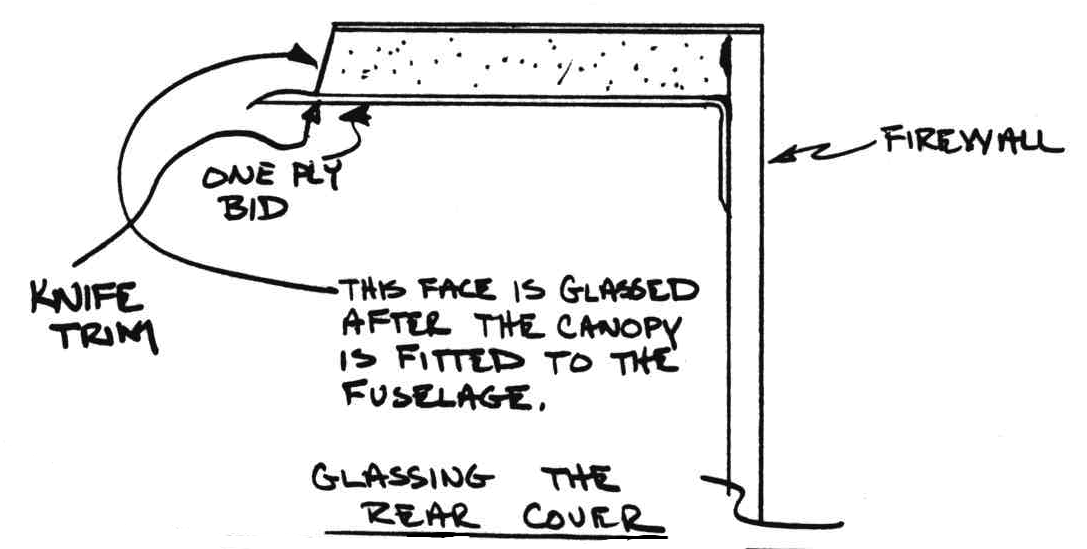 FIREWALL
ONE PLY
BID
KNIFE
TRIM
THIS FACE IS GLASSED
AFTER THE CANOPY
IS FITTED TO THE
FUSELAGE.
GLASSING THE
REAR COVER